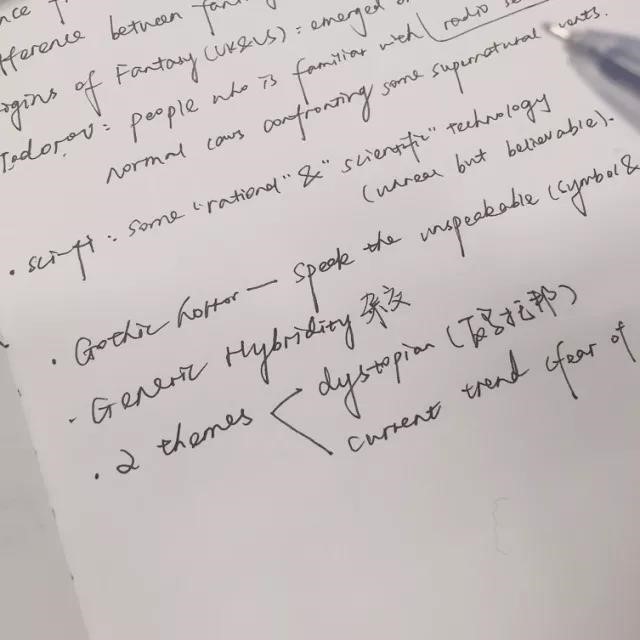 difference between
origins of Fantasy (UK&US): emerged
Todorov: people who is familiar with radio
normal laws confronting some supernatural events.
• sci-fi: some "rational" & "scientific" technology
(unreal but believable).
• Gothic horror — speak the unspeakable (symbol &
• Generic Hybridity 杂交
• 2 themes
dystopian (反乌托邦)
current trend (fear of